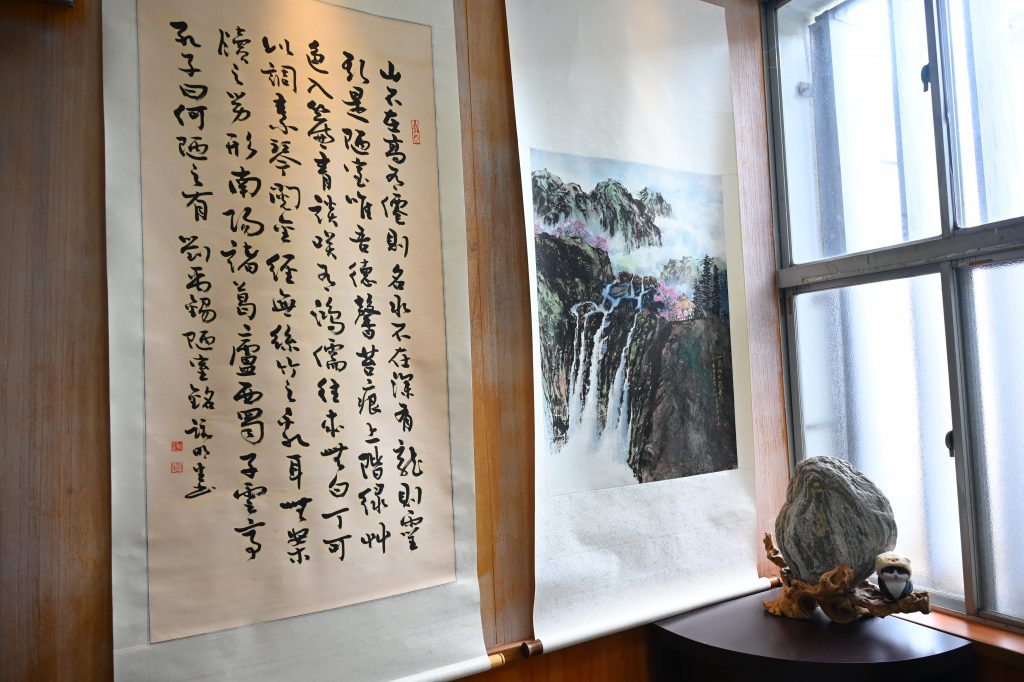 山不在高有僊則名水不在深有龍則靈
斯是陋室唯吾德馨苔痕上階綠艸
色入簾青談咲有鴻儒往來無白丁可
以調素琴閱金經無絲竹之亂耳無案
牘之勞形南陽諸葛廬西蜀子雲亭
孔子曰何陋之有 劉禹錫陋室銘